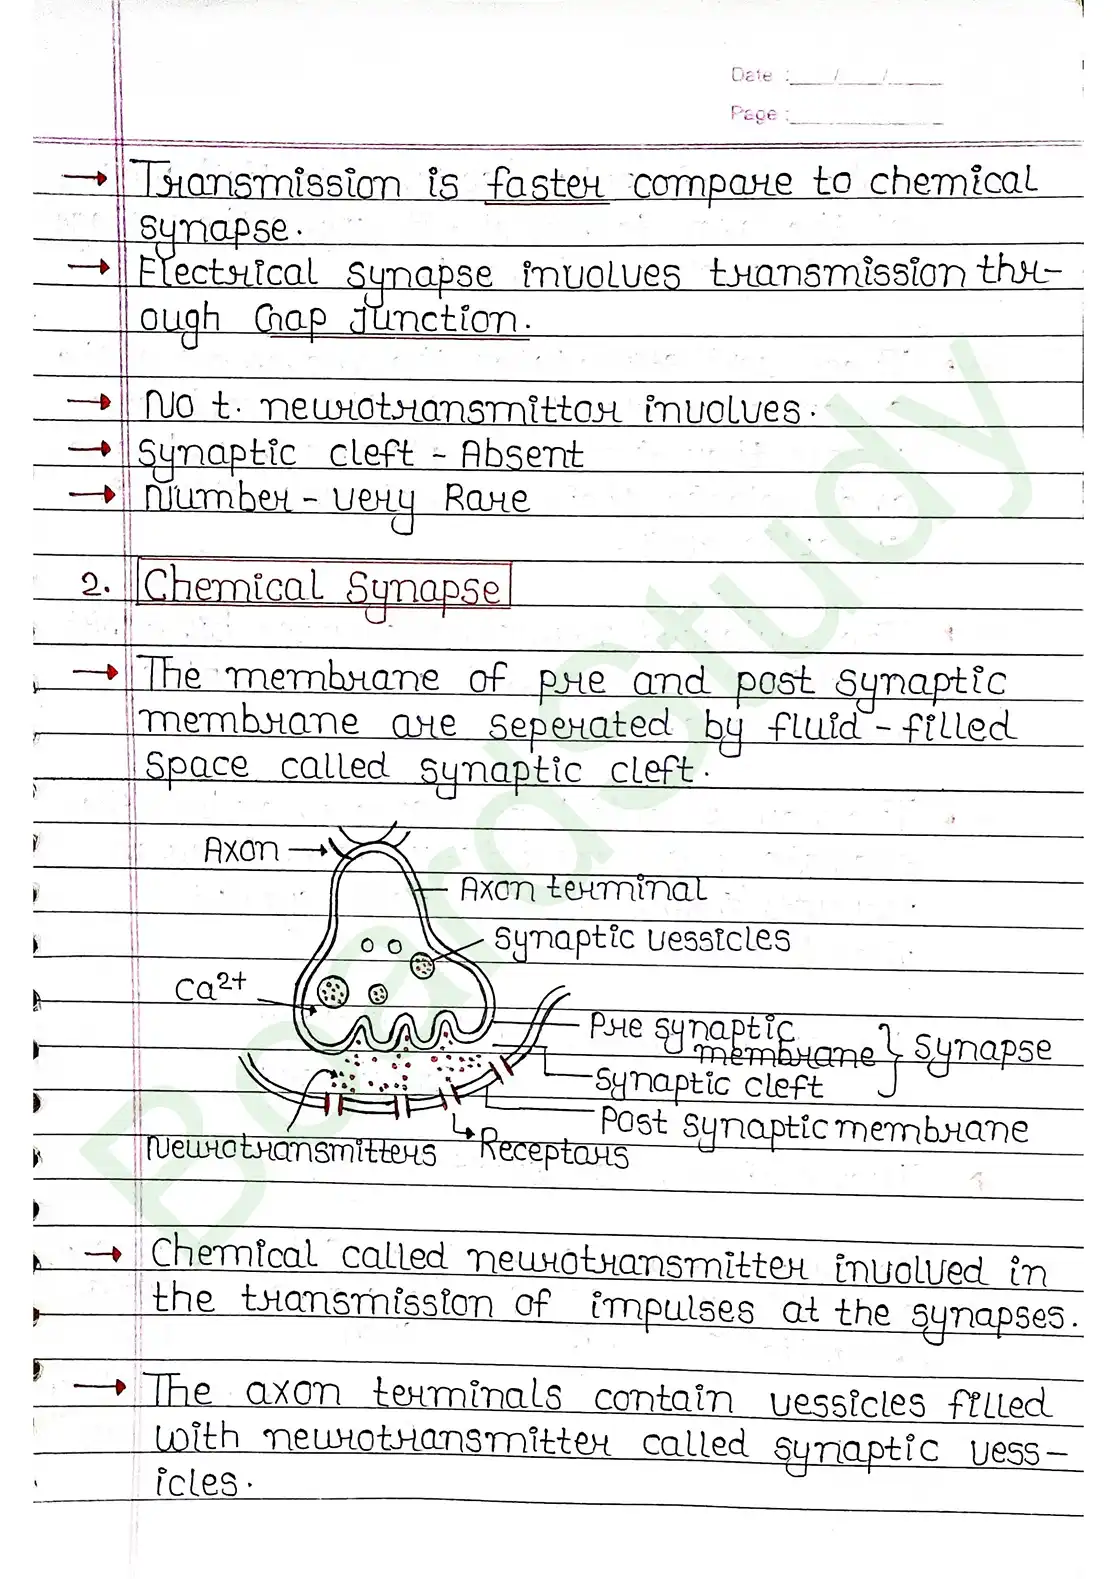 Date : __/__/__
Page : ____
→ Transmission is faster compare to chemical
synapse.
→ Electrical synapse involves transmission thr-
ough Gap Junction.
→ No t. neurotransmittor involves.
→ Synaptic cleft - Absent
→ Number - very Rare
2. Chemical Synapse
→ The membrane of pre and post synaptic
membrane are seperated by fluid - filled
Space called synaptic cleft.
Axon →
Axon terminal
Synaptic vessicles
Ca2+
Pre synaptic
membrane
} Synapse
Synaptic cleft
Post synaptic membrane
Neurotransmitters
Receptors
→ Chemical called neurotransmitter involved in
the transmission of impulses at the synapses.
→ The axon terminals contain vessicles filled
with neurotransmitter called synaptic vess-
icles.
BoardStudy